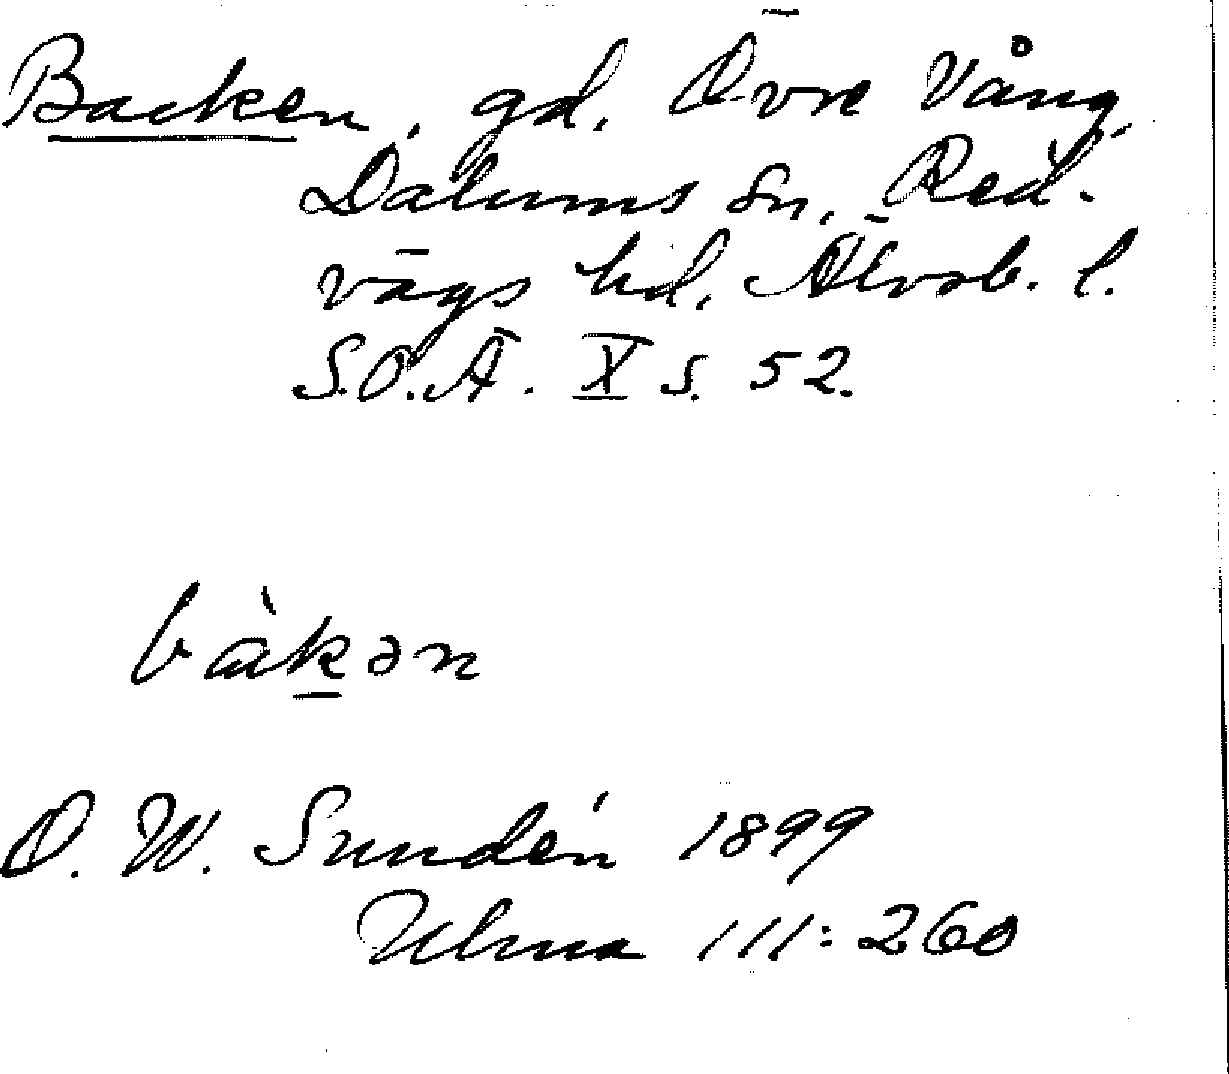 Backen, gd. Övre Vång,
Dalums sn, Red-
vägs hd, Älvsb. l.
S.O.Ä. X s. 52.
bàkən
O. W. Sundén 1899
Ulma 111:260